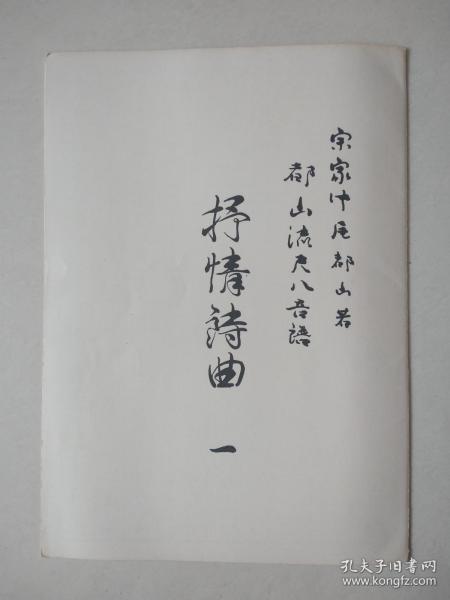 宗家中尾都山著
都山流尺八音譜
抒情詩曲 一
孔夫子旧书网
www.kongfz.com